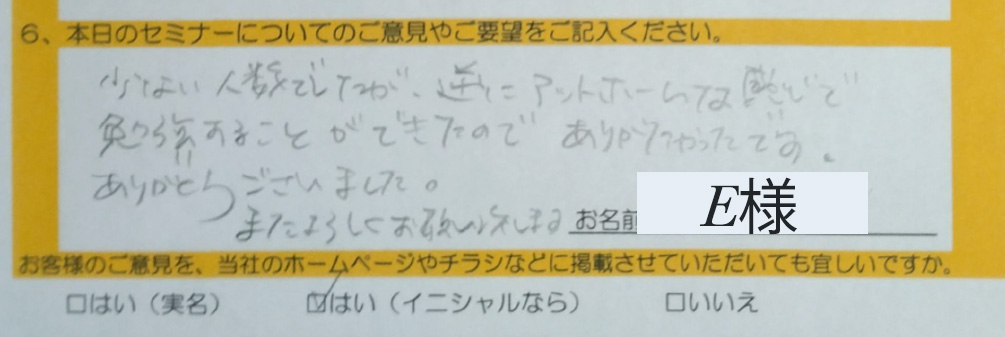 6、本日のセミナーについてのご意見やご要望をご記入ください。
少ない人数でしたが、逆にアットホームな感じで
勉強することができたので ありがたかったです。
ありがとうございました。
またよろしくお願い致します
お名前 E様
お客様のご意見を、当社のホームページやチラシなどに掲載させていただいても宜しいですか。
□はい(実名) ☑はい(イニシャルなら) □いいえ